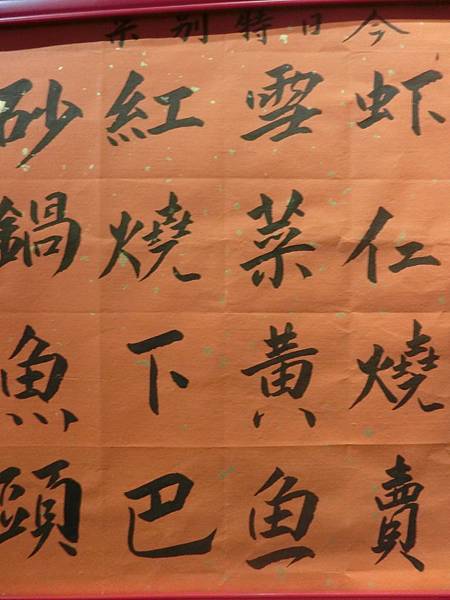 今日特別菜
虾仁燒賣
雪菜黃鱼
紅燒下巴
砂鍋魚頭